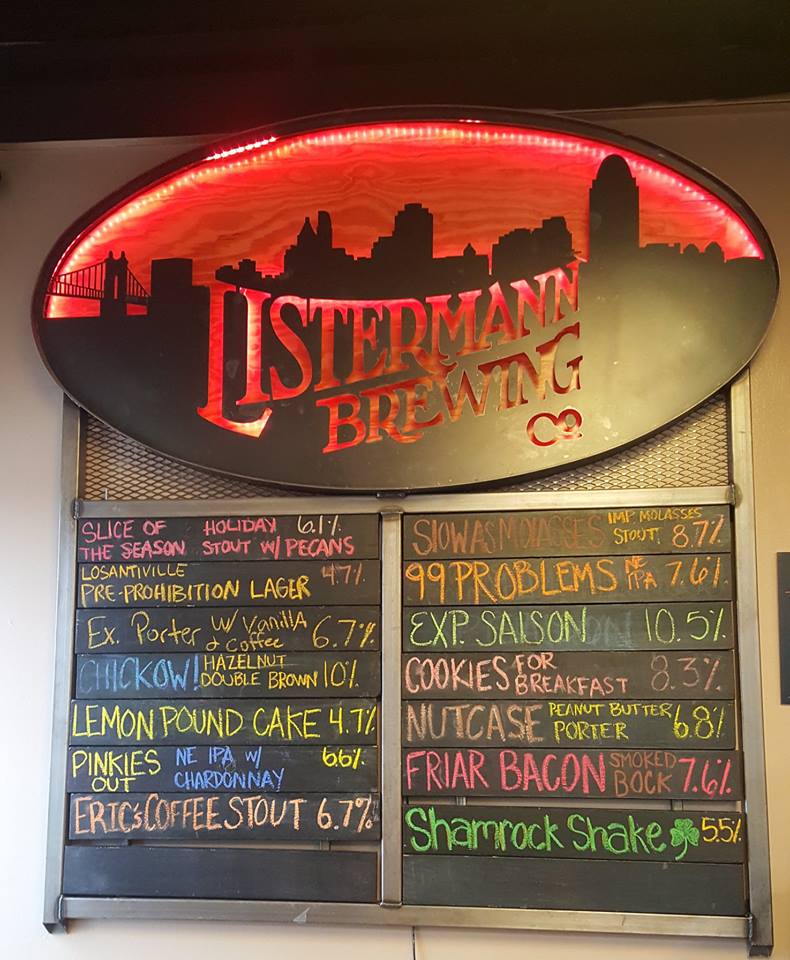 LISTERMANN
BREWING
CO
SLICE OF HOLIDAY 6.1%
THE SEASON STOUT W/ PECANS
LOSANTIVILLE 4.7%
PRE-PROHIBITION LAGER
Ex. Porter w/ Vanilla 6.7%
& Coffee
CHICKOW! HAZELNUT 10%
DOUBLE BROWN
LEMON POUND CAKE 4.7%
PINKIES NE IPA W/ 6.6%
OUT CHARDONNAY
ERIC'S COFFEE STOUT 6.7%
SLOW AS MOLASSES IMP MOLASSES 8.7%
STOUT
99 PROBLEMS NE 7.6%
IPA
EXP. SAISON 10.5%
COOKIES FOR 8.3%
BREAKFAST
NUTCASE PEANUT BUTTER 6.8%
PORTER
FRIAR BACON SMOKED 7.6%
BOCK
Shamrock Shake 5.5%